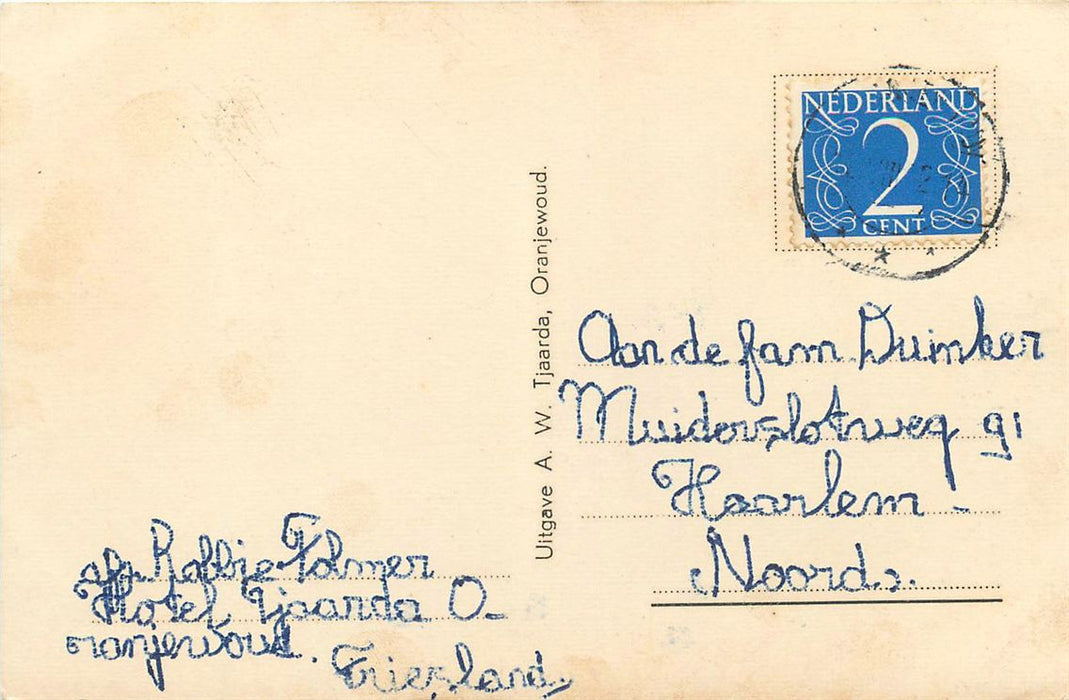 NEDERLAND
2
CENT
Uitgave A. W. Tjaarda, Oranjewoud.
Aan de fam Duinker
Muiderslotweg 91
Haarlem -
Noord.
afz. Robbie Folmer
Hotel Tjaarda O-
ranjewoud.
Friesland.